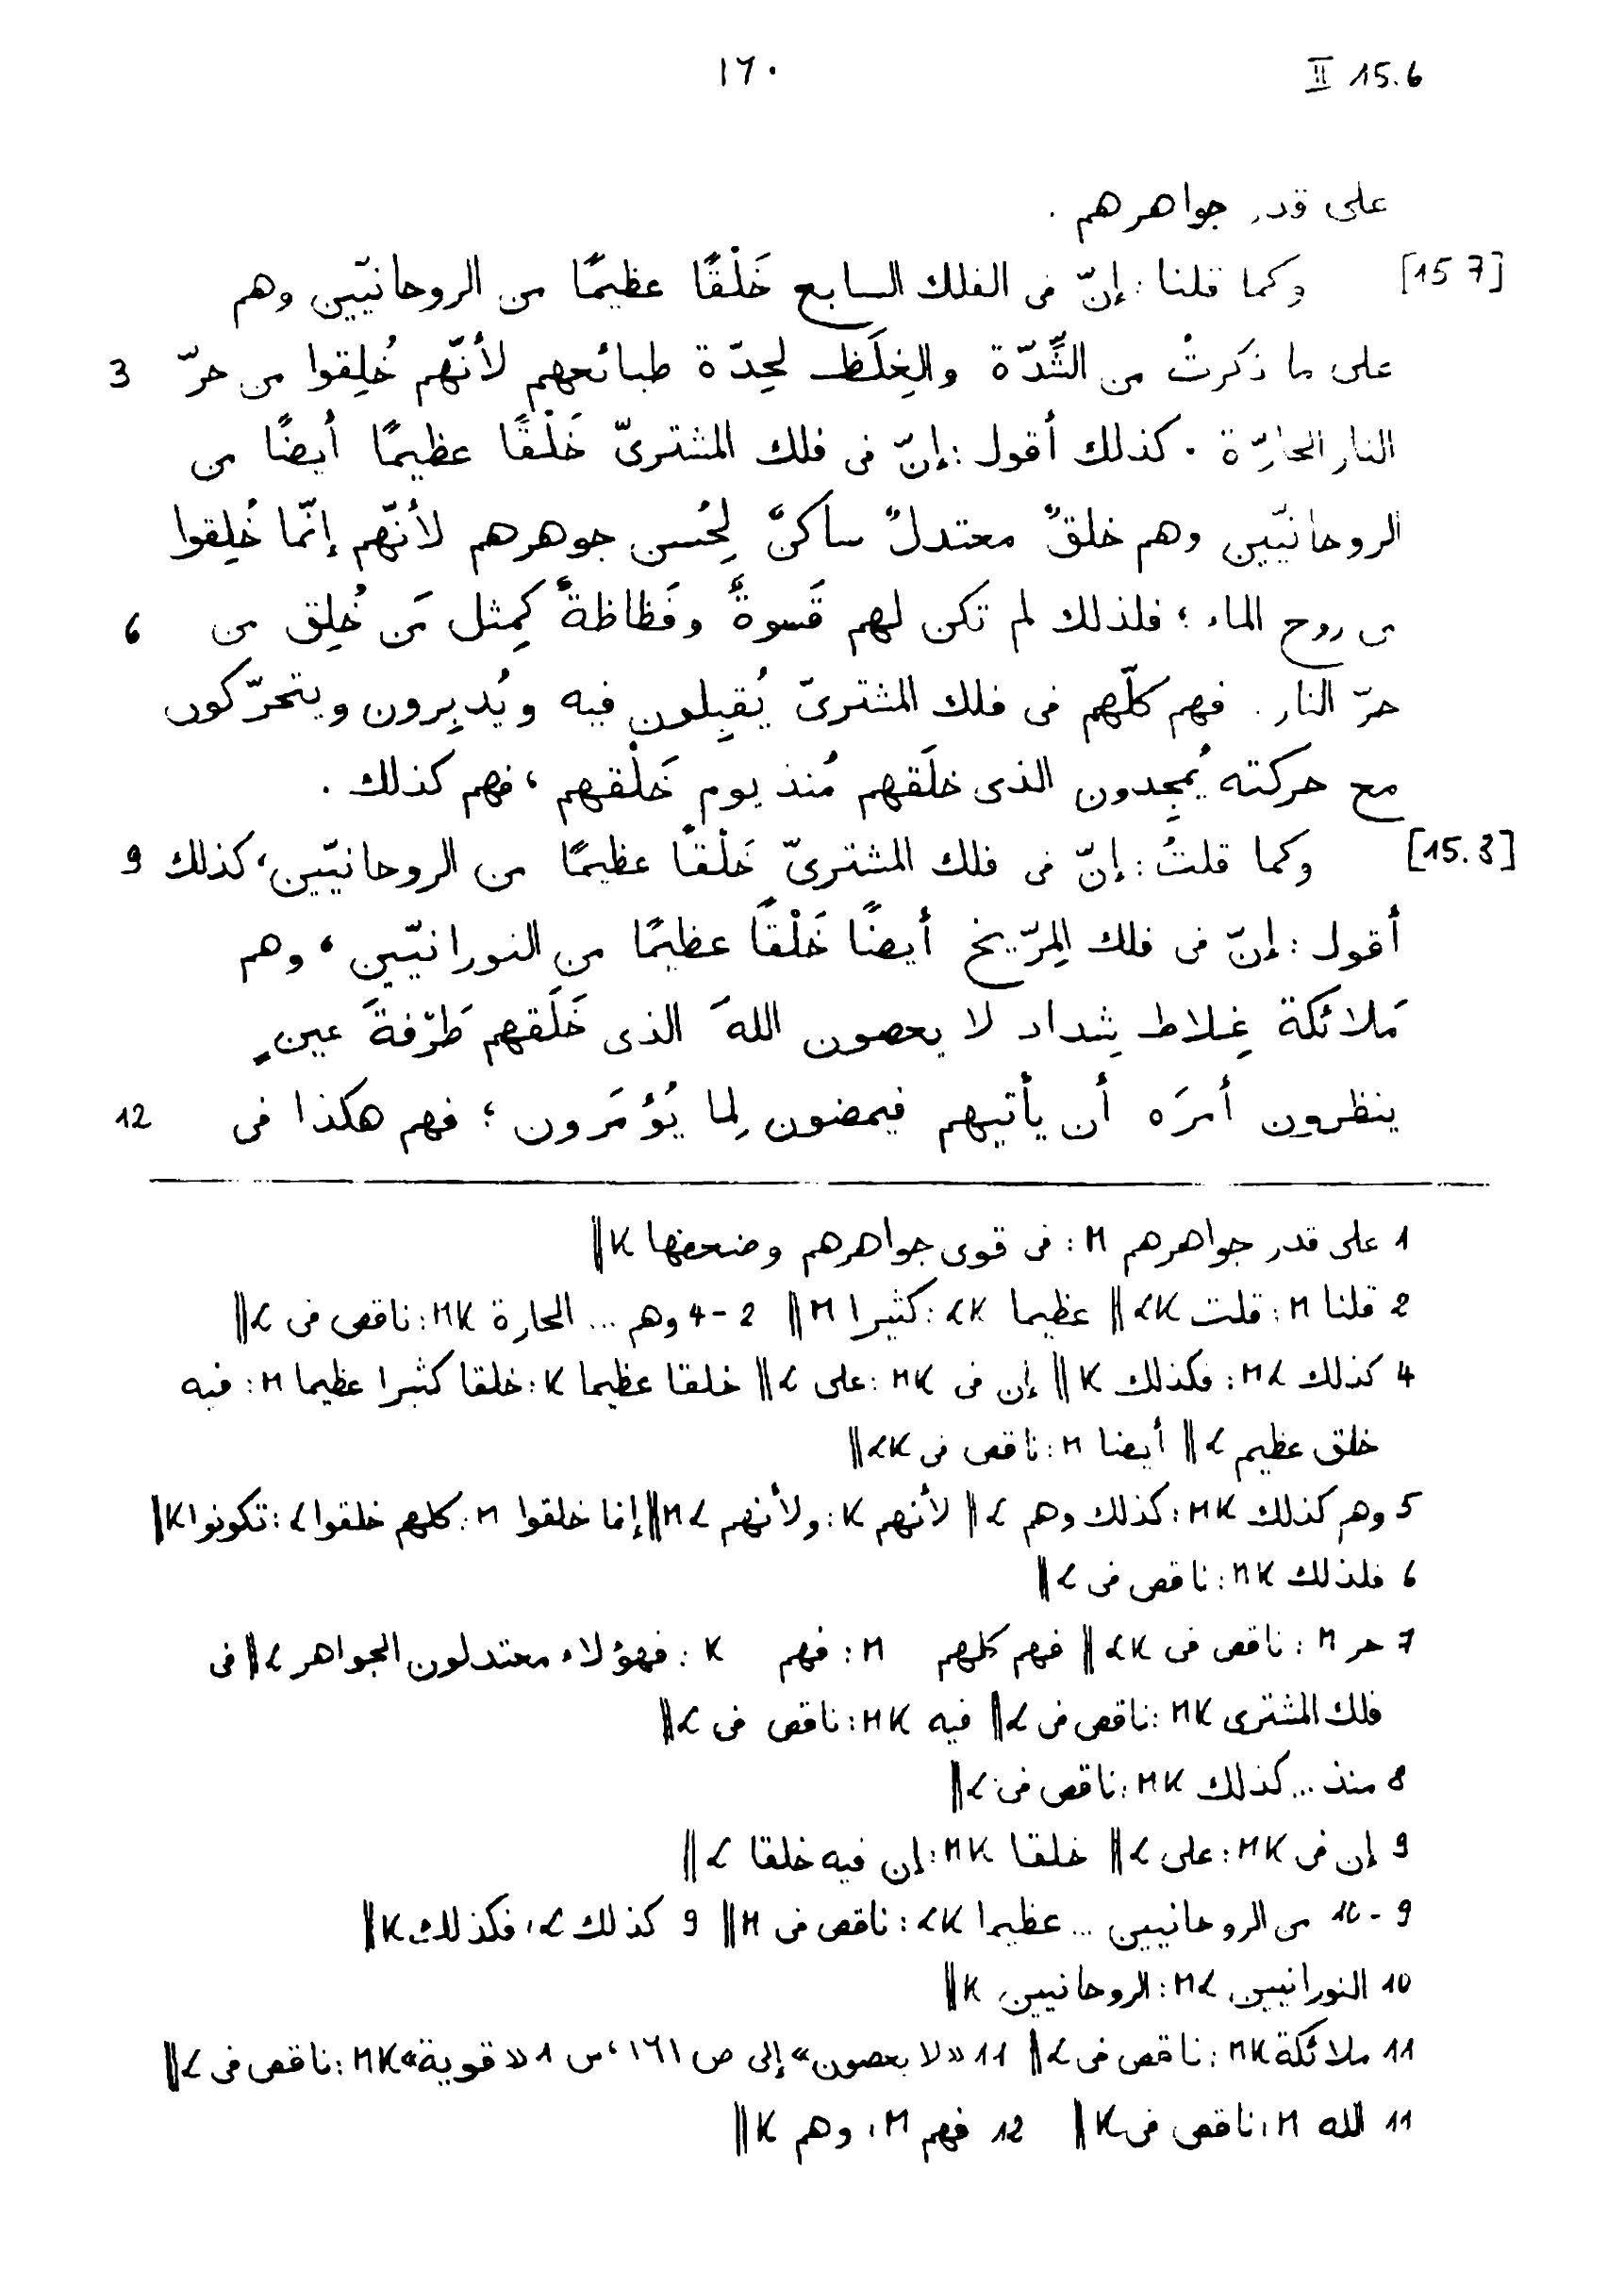 ١٦٠ II 15.6
على قدر جواهرهم .
[15 7] وكما قلنا : إنّ فى الفلك السابع خَلْقًا عظيمًا من الروحانيّين وهم
على ما ذكرتُ من الشِّدّة والغِلَظ لحِدّة طبائعهم لأنّهم خُلِقوا من حرّ 3
النار الحارّة . كذلك أقول : إنّ فى فلك المشترىّ خَلْقًا عظيمًا أيضًا من
الروحانيّين وهم خلقٌ معتدلٌ ساكنٌ لِحُسن جوهرهم لأنّهم إنّما خُلِقوا
من روح الماء ؛ فلذلك لم تكن لهم قَسوةٌ وفَظاظةٌ كمِثل مَن خُلِق من 6
حرّ النار . فهم كلّهم فى فلك المشترىّ يُقبِلون فيه ويُدبِرون ويتحرّكون
مع حركته يُمجِدون الذى خلَقهم مُنذ يوم خَلْقهم ، فهم كذلك .
[15.8] وكما قلتُ : إنّ فى فلك المشترىّ خَلْقًا عظيمًا من الروحانيّين ، كذلك 9
أقول : إنّ فى فلك المِرّيخ أيضًا خَلْقًا عظيمًا من النورانيّين ، وهم
مَلائكة غِلاط شِداد لا يعصون اللهَ الذى خَلَقهم طَرْفةَ عينٍ
ينظرون أمرَه أن يأتيهم فيمضون لِما يُؤمَرون ؛ فهم هكذا فى 12
1 على قدر جواهرهم M : فى قوى جواهرهم وضعفها K ||
2 قلنا M : قلت LK || عظيما LK : كثيرا M || 2 - 4 وهم ... الحارة MK : ناقص فى L ||
4 كذلك ML : فكذلك K || إن فى MK : على L || خلقا عظيما K : خلقا كثيرا عظيما M : فيه
خلق عظيم L || أيضا M : ناقص فى LK ||
5 وهم كذلك MK : كذلك وهم L || لأنهم K : ولأنهم ML || إنما خلقوا M : كلهم خلقوا L : تكونوا K ||
6 فلذلك MK : ناقص فى L ||
7 حر M : ناقص فى LK || فهم كلهم M : فهم K : فهؤلاء معتدلون الجواهر L || فى
فلك المشترى MK : ناقص فى L || فيه MK : ناقص فى L ||
8 منذ ... كذلك MK : ناقص فى L ||
9 إن فى MK : على L || خلقا MK : إن فيه خلقا L ||
9 - 10 من الروحانيين ... عظيما LK : ناقص فى M || 9 كذلك L : فكذلك K ||
10 النورانيين ML : الروحانيين K ||
11 ملائكة MK : ناقص فى L || 11 «لا يعصون» إلى ص ١٦١ ، س 1 «قوية» MK : ناقص فى L ||
11 الله M : ناقص فى K || 12 فهم M : وهم K ||